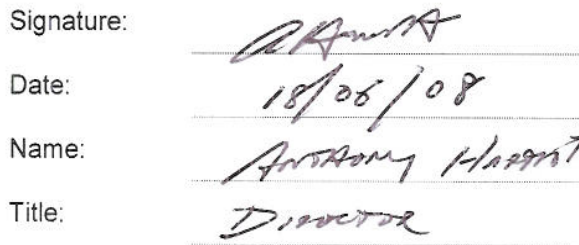 Signature:
Date: 18/06/08
Name: Anthony
Title: Director